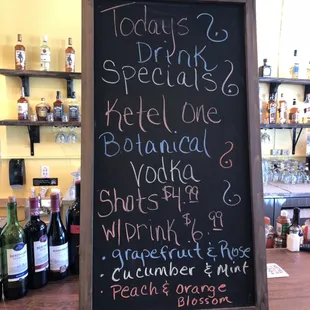 Todays
Drink
Specials
Ketel One
Botanical
Vodka
Shots $4.99
W/Drink $6.99
• grapefruit & Rose
• Cucumber & Mint
• Peach & Orange
Blossom